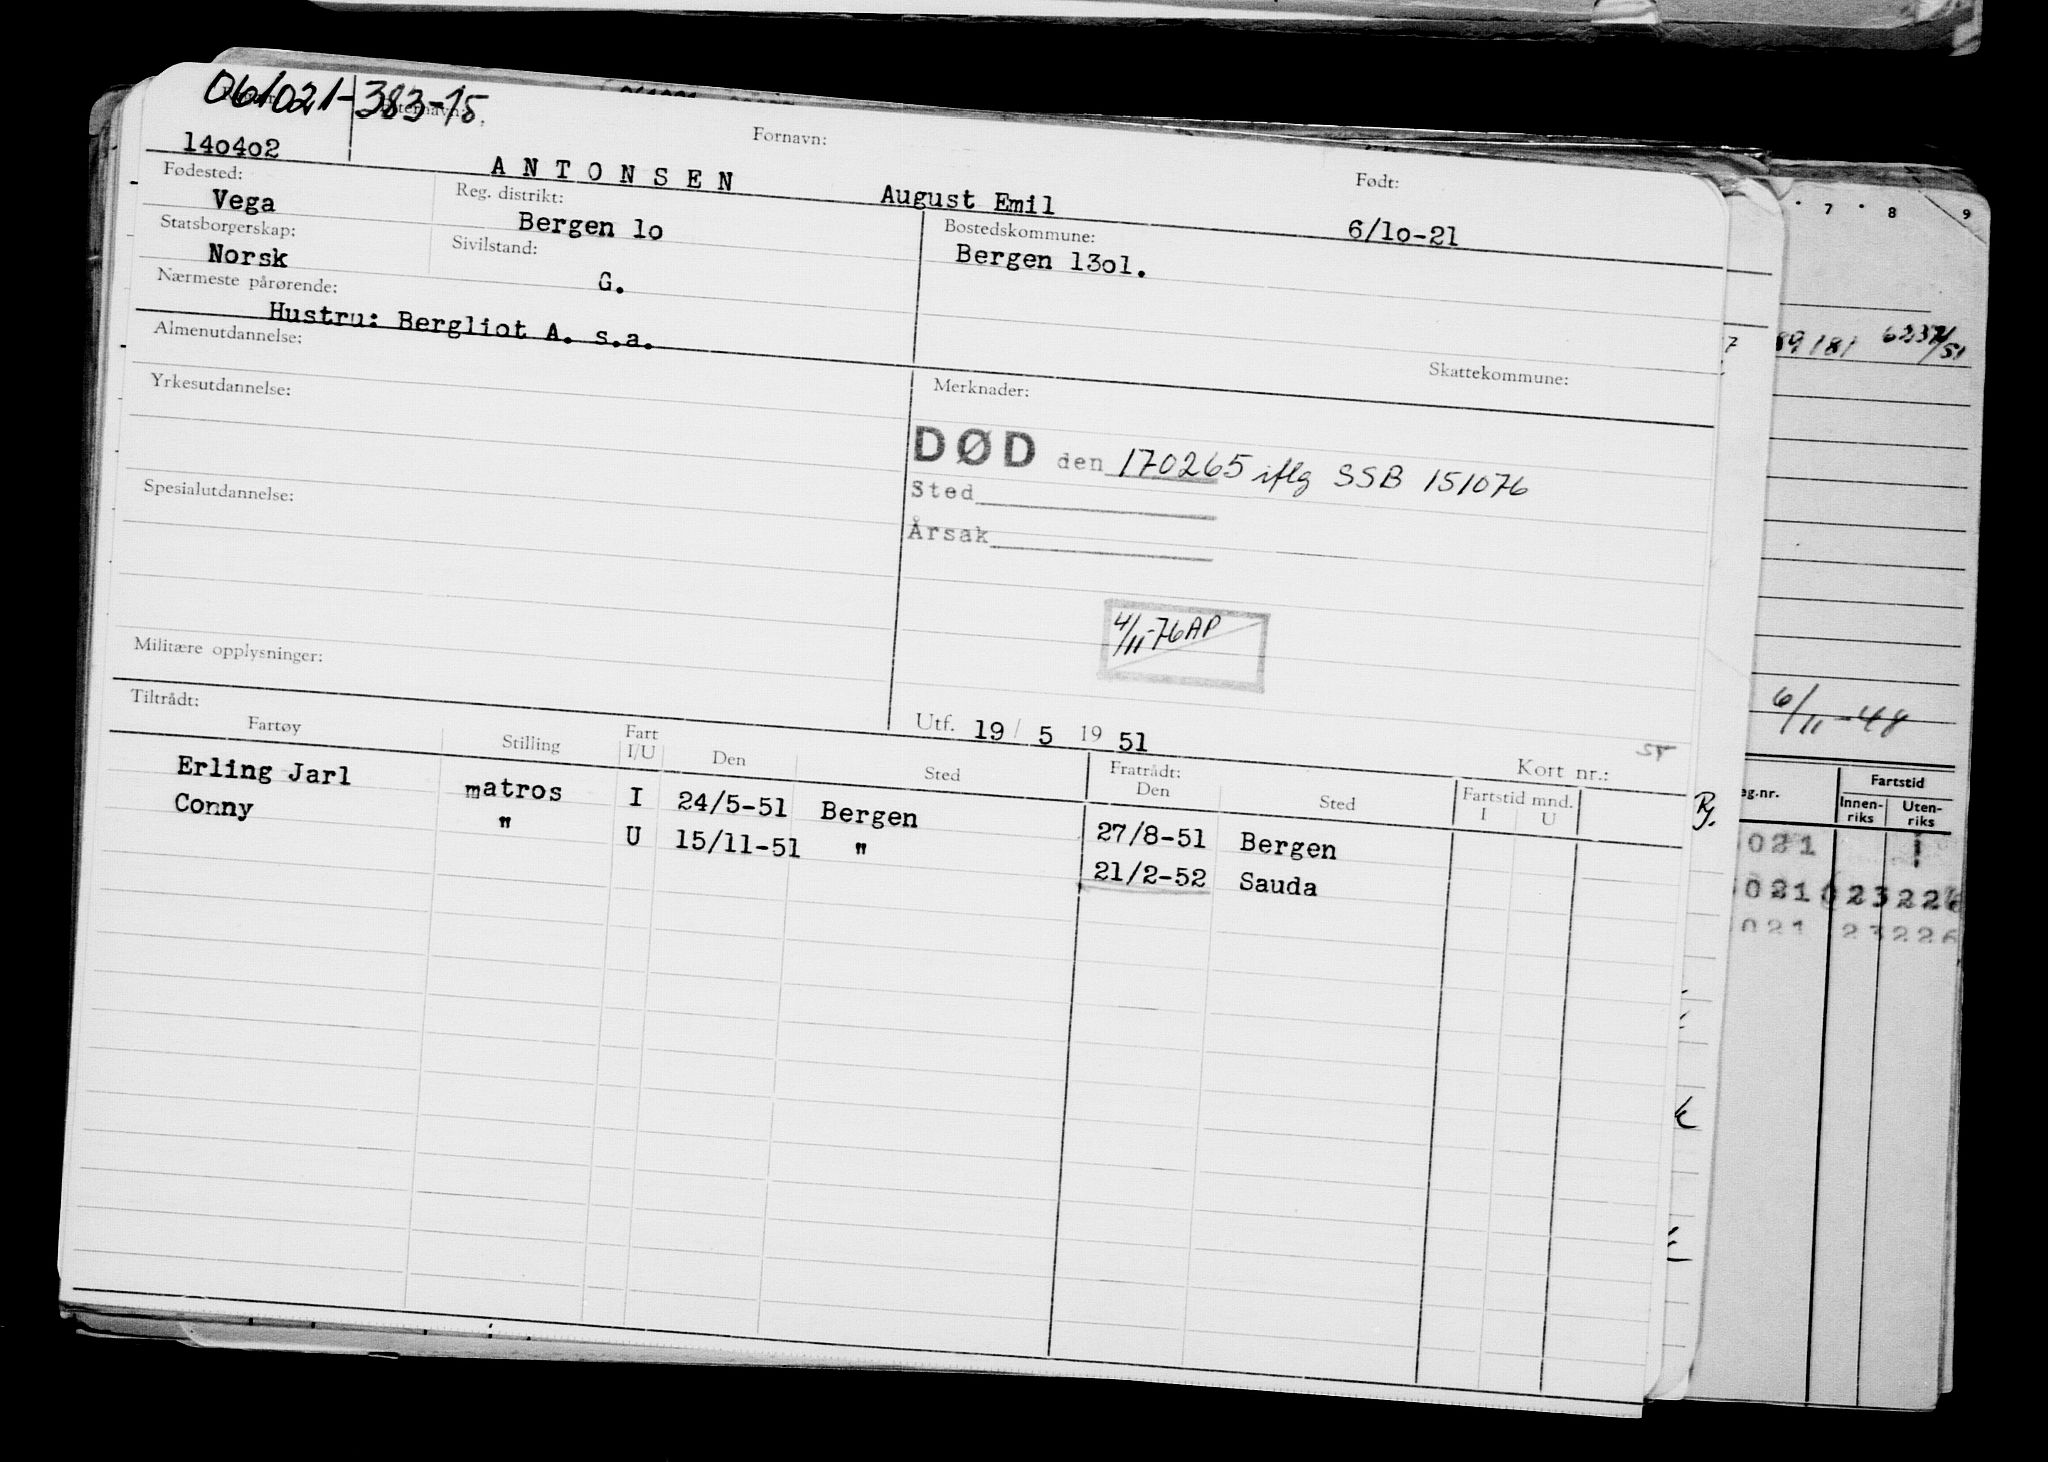 061021-383-15
140402 Fornavn:
A N T O N S E N August Emil Født: 6/10-21
Fødested: Vega Reg. distrikt: Bergen 10 Bostedskommune: Bergen 1301.
Statsborgerskap: Norsk Sivilstand: G.
Nærmeste pårørende: Hustru: Bergliot A. s.a.
Skattekommune:
Almenutdannelse:
Yrkesutdannelse:
Merknader:
DØD den 170265 iflg SSB 151076
Sted
Årsak
Spesialutdannelse:
4/11-76 AP
Militære opplysninger:
Utf. 19 / 5 19 51
Kort nr.:
Tiltrådt: Fratrådt:
Fartøy Stilling Fart I/U Den Sted Den Sted Fartstid mnd. I U
Erling Jarl matros I 24/5-51 Bergen 27/8-51 Bergen
Conny " U 15/11-51 " 21/2-52 Sauda
7 8 9
89181 6237/51
6/11-48
eg.nr. Fartstid
Innen-riks Uten-riks
021
021 023226
021 23226